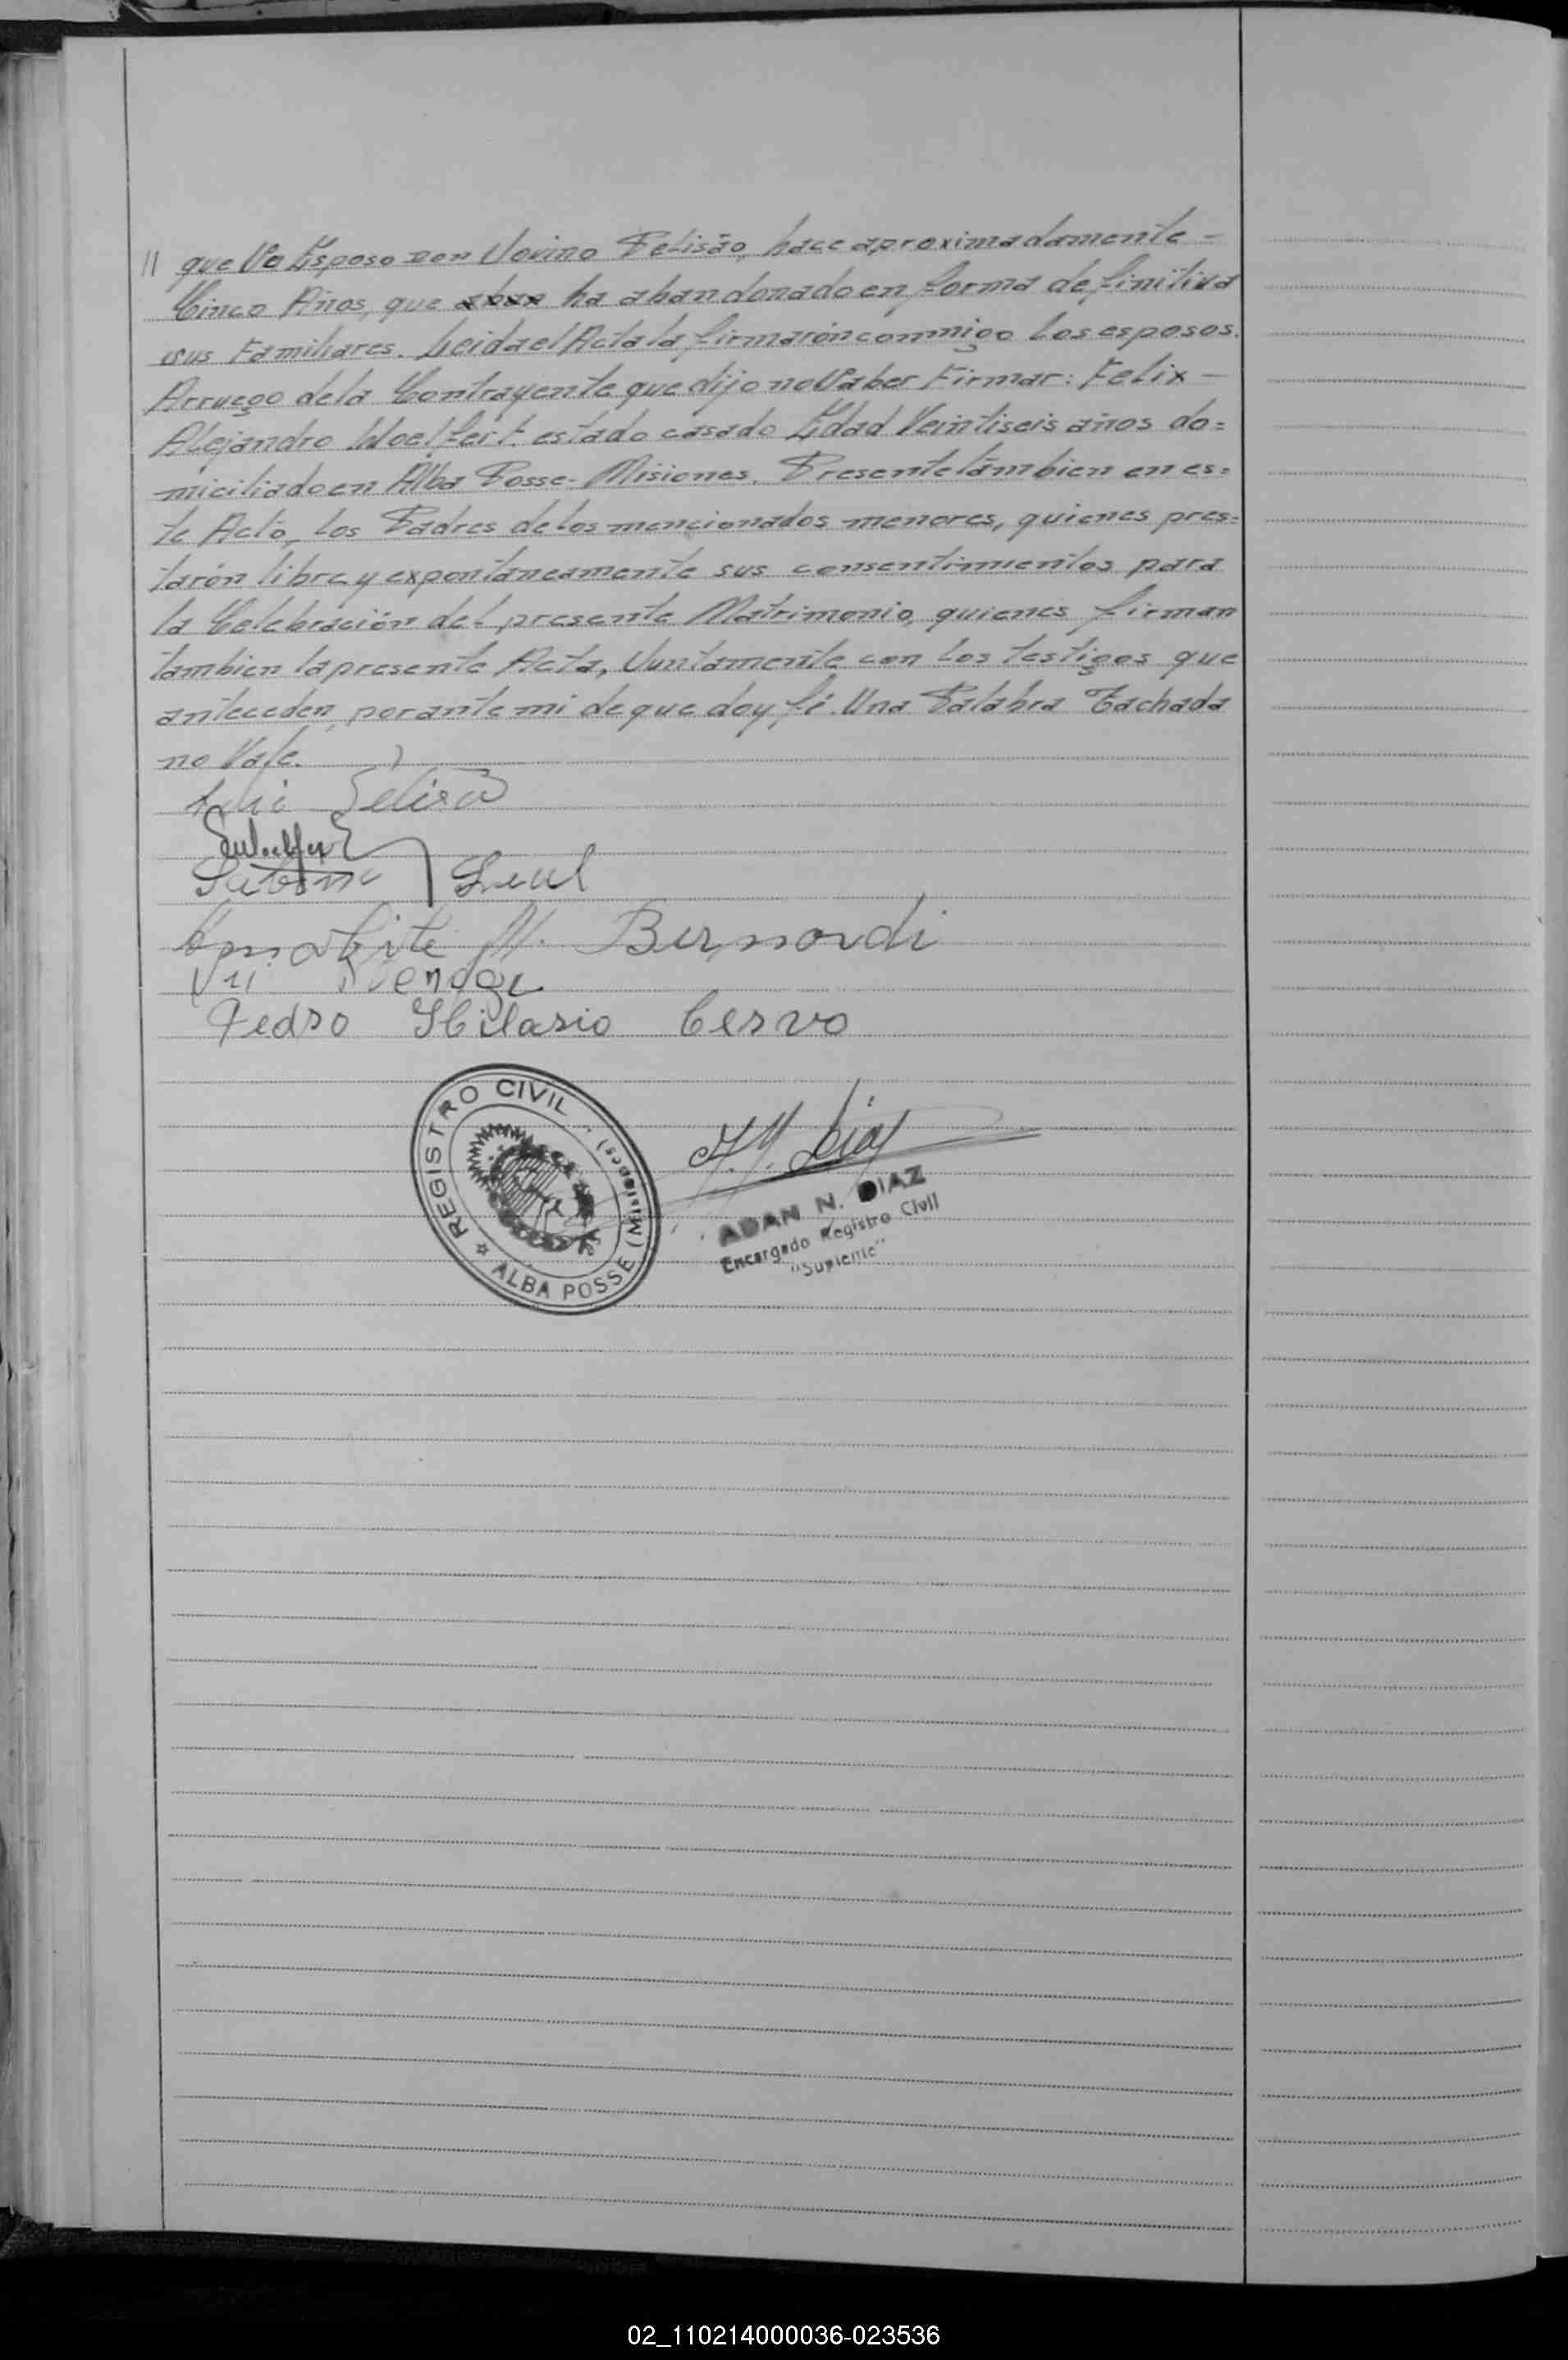 // que su Esposo Don Jovino Pelisão, hace aproximadamente -
Cinco Años, que ha abandonado en forma definitiva
sus Familiares. Leida el Acta la firmarón conmigo los esposos.
Arruego dela Contrayente que dijo no Saber Firmar: Felix -
Alejandro Woelfert estado casado Edad Veintiseis años do=
miciliado en Alba Posse - Misiones. Presente tambien en es=
te Acto, los Padres de los mencionados menores, quienes pres=
tarón libre y expontaneamente sus consentimientos para
la Celebración del presente Matrimonio, quienes firman
tambien la presente Acta, Juntamente con los testigos que
anteceden, por ante mi de que doy fé. Una Palabra Tachada
no Vale.
Pelisão
Leal
M. Bernardi
Pedro Hilario Cervo
REGISTRO CIVIL
ALBA POSSE (Misiones)
A. N. Diaz
ADAN N. DIAZ
Encargado Registro Civil
"Suplente"
02_110214000036-023536